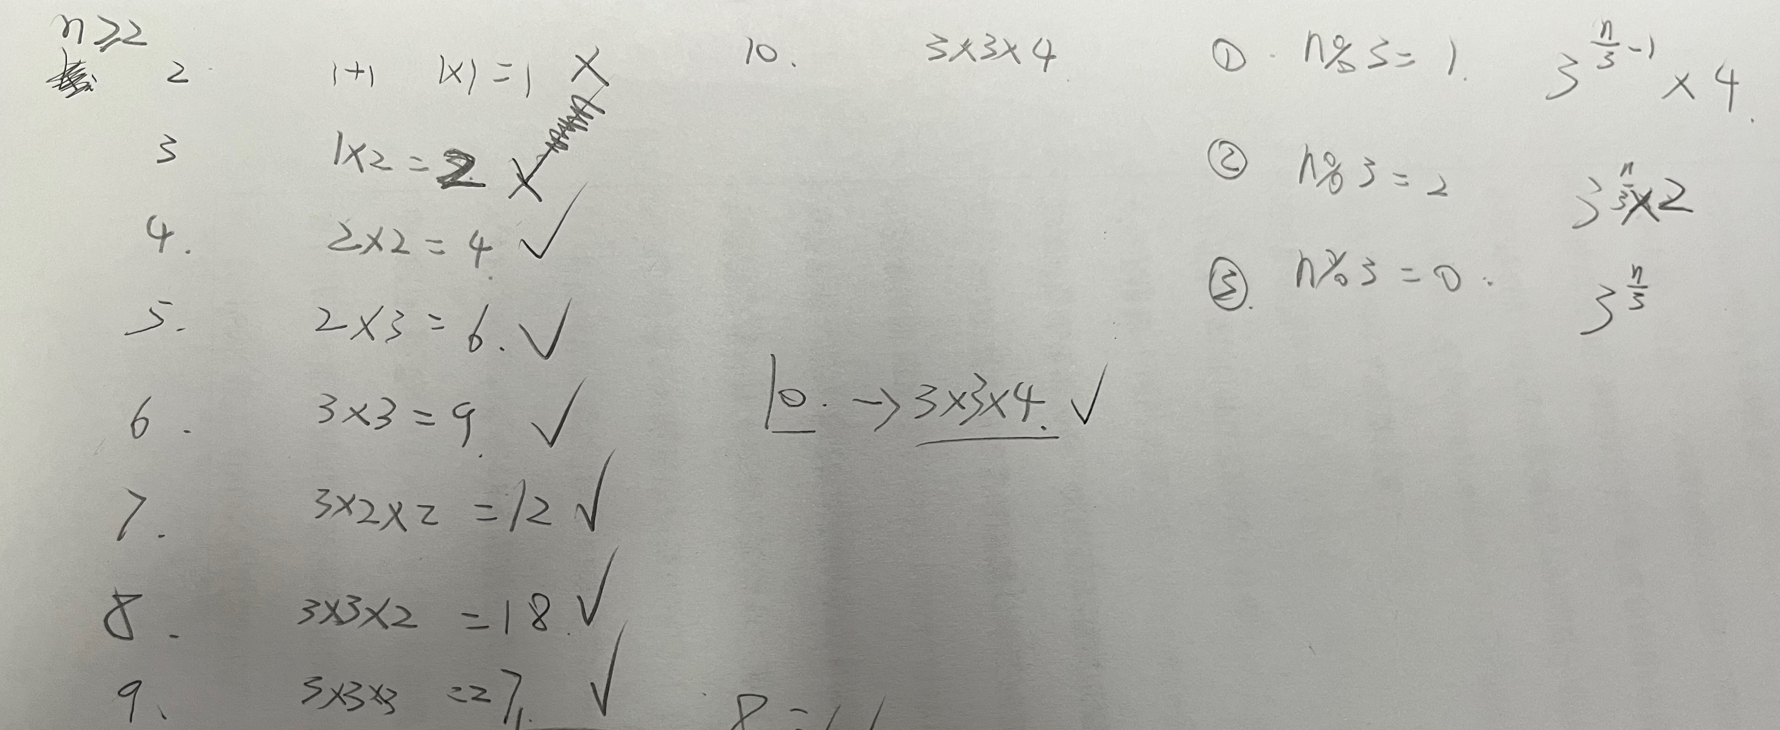 n≥2
2 1+1 1×1=1 ×
3 1×2=2 ×
4. 2×2=4 ✓
5. 2×3=6. ✓
6. 3×3=9 ✓
7. 3×2×2=12 ✓
8. 3×3×2=18 ✓
9. 3×3×3=27 ✓
10. 3×3×4
10. →3×3×4. ✓
① n%3=1. 3^(n/3-1)×4.
② n%3=2 3^(n/3)×2
③ n%3=0. 3^(n/3)